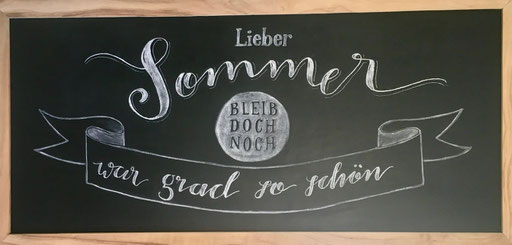 Lieber
Sommer
BLEIB
DOCH
NOCH
war grad so schön